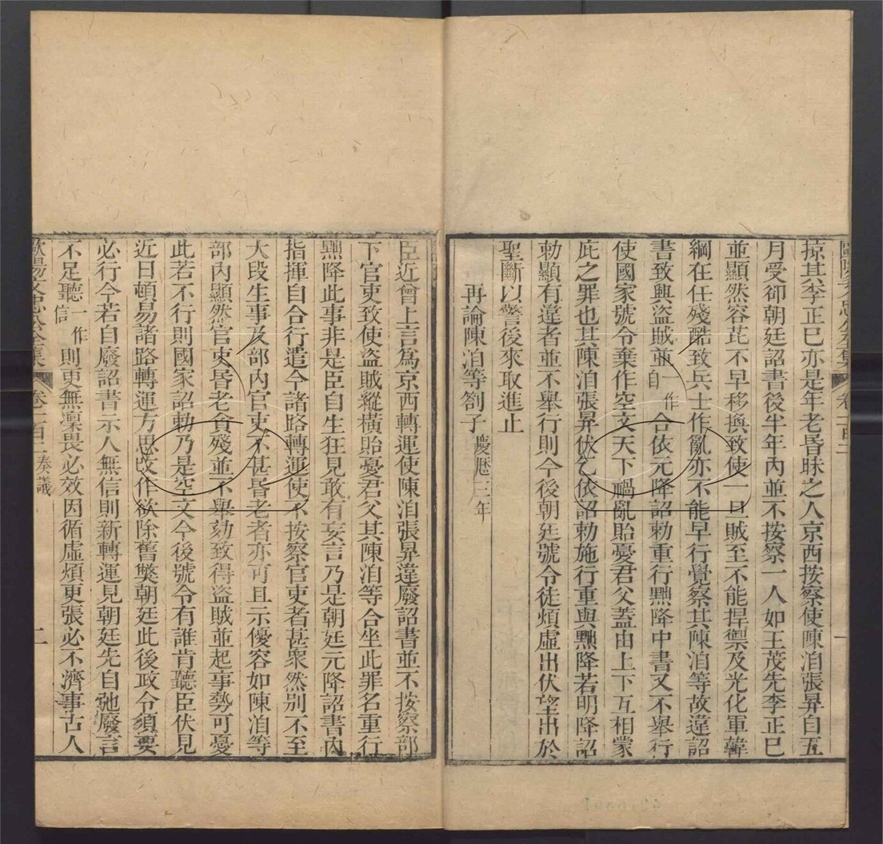 掠其李正巳亦是年老昏昧之人京西按察使陳洎張昇自五
月受卻朝廷詔書後半年內並不按察一人如王茂先李正巳
並顯然容芘不早移換致使一旦賊至不能捍禦及光化軍韓
綱在任殘酷致兵士作亂亦不能早行覺察其陳洎等故違詔
書致興盜賊並一作自合依元降詔勅重行黜降中書又不舉行
使國家號令棄作空文天下禍亂貽憂君父蓋由上下互相蒙
庇之罪也其陳洎張昇伏乞依詔勅施行重與黜降若明降詔
勅顯有違者並不舉行則今後朝廷號令徒煩虛出伏望出於
聖斷以警後來取進止
再論陳洎等劄子慶歷三年
臣近曾上言為京西轉運使陳洎張昇違廢詔書並不按察部
下官吏致使盜賊縱橫貽憂君父其陳洎等合坐此罪名重行
黜降此事非是臣自生狂見敢有妄言乃是朝廷元降詔書內
指揮自合行遣今諸路轉運使不按察官吏者甚衆然別不至
大段生事及部內官吏不甚昏老者亦可且示優容如陳洎等
部內顯然官吏昏老貪殘並不舉劾致得盜賊並起事勢可憂
此若不行則國家詔勅乃是空文今後號令有誰肯聽臣伏見
近日頓易諸路轉運方思改作欲除舊弊朝廷此後政令須要
必行今若自廢詔書示人無信則新轉運見朝廷先自弛廢言
不足聽一作信則更無凜畏必效因循虛煩更張必不濟事古人
歐陽文忠公全集 卷一百二 奏議 二